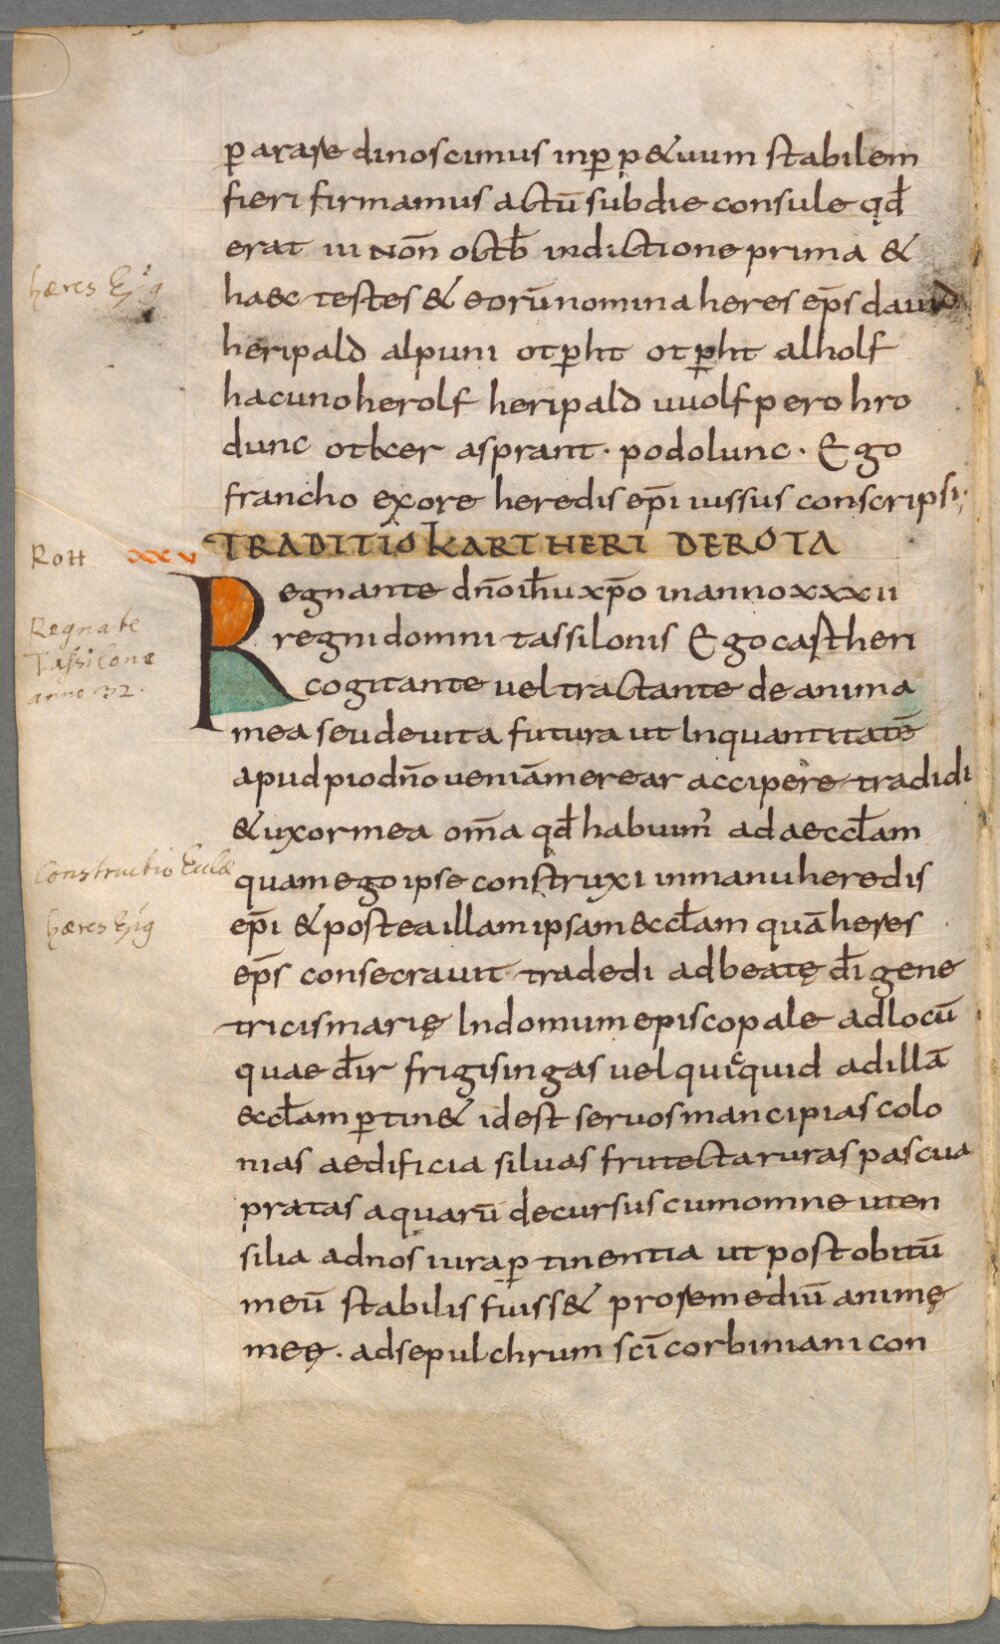 ꝑarare dinoscimus inꝑp&uum stabilem
fieri firmamus actū sub die consule qđ
erat iii noñ octb̄ indictione prima &
hæres Ep̃g
haec testes & eorū nomina heres ep̄s dauid
heripald alpuni otꝑht otꝑht alholf
hacuno herolf heripald uuolfpero hro
dunc otker asprant · podolunc · Ego
francho ex ore heredis ep̄i iussus conscripsi;
Rott xxv TRADITIO KARTHERI DEROTA
Regnante dño ih̄u xp̄o in anno xxxii
Regnāte
Tassilone
anno 32.
regni domni tassilonis Ego castheri
cogitante uel tractante de anima
mea seu de uita futura ut In quantitatē
apud pio dño ueniā merear accipere tradidi
& uxor mea om̄a qđ habuim᾽ ad aeccłam
Constructio Eccłæ
quam ego ipse construxi in manu heredis
hæres Ep̃g
ep̄i & postea illam ipsam &ccłam quā heres
ep̄s consecrauit tradedi ad beatę dī gene
tricis marię In domum episcopale ad locū
quae dīr frigisingas uel quicquid ad illā
&ccłam ꝑtin& id est seruos mancipias colo
nias aedificia siluas frutecta ruras pascua
pratas aquarū decursus cum omne uten
silia ad nos iura ꝑtinentia ut post obitū
meū stabilis fuiss& pro remediū animę
meę · ad sepulchrum sc̄i corbiniani con